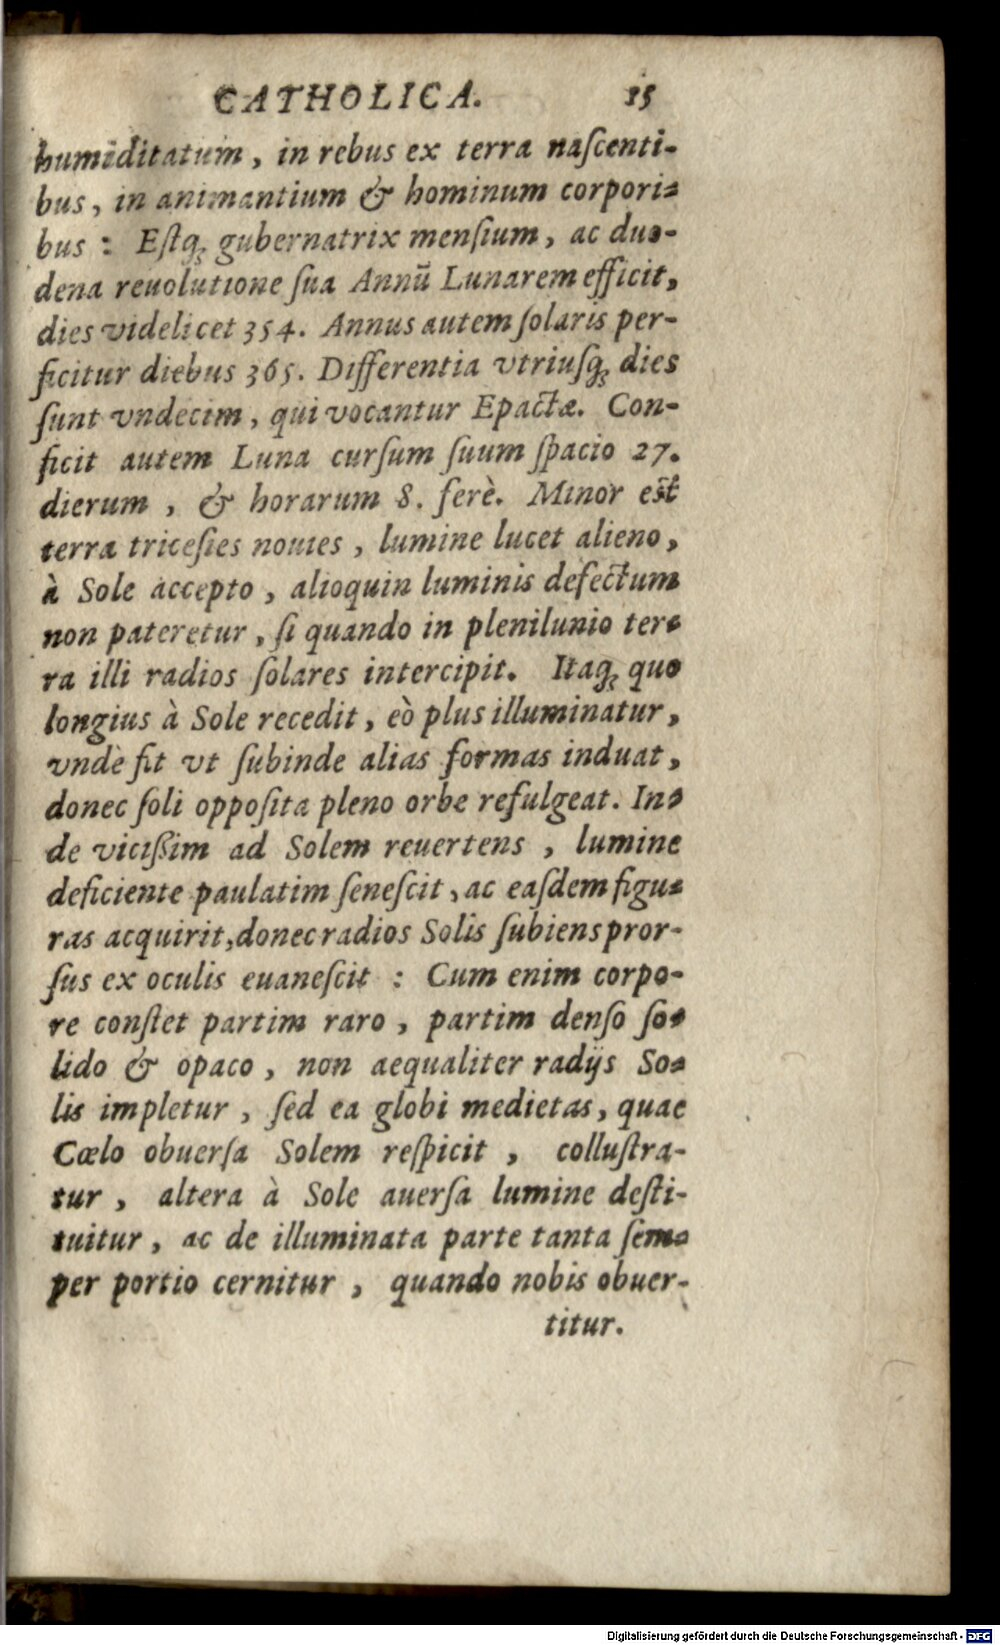 CATHOLICA. 15
humiditatum, in rebus ex terra naſcenti-
bus, in animantium & hominum corpori-
bus : Eſtq́ꝫ gubernatrix menſium, ac duo-
dena reuolutione ſua Annū Lunarem efficit,
dies videlicet 354. Annus autem ſolaris per-
ficitur diebus 365. Differentia vtriuſqꝫ dies
ſunt vndecim, qui vocantur Epactæ. Con-
ficit autem Luna curſum ſuum ſpacio 27.
dierum, & horarum 8. ferè. Minor est
terra triceſies nouies, lumine lucet alieno,
à Sole accepto, alioquin luminis defectum
non pateretur, ſi quando in plenilunio ter-
ra illi radios ſolares intercipit. Itaqꝫ quo
longius à Sole recedit, eò plus illuminatur,
vndè fit vt ſubinde alias formas induat,
donec ſoli oppoſita pleno orbe refulgeat. In-
de viciſſim ad Solem reuertens, lumine
deficiente paulatim ſeneſcit, ac eaſdem figu-
ras acquirit, donec radios Solis ſubiens pror-
ſus ex oculis euaneſcit : Cum enim corpo-
re conſtet partim raro, partim denſo ſo-
lido & opaco, non aequaliter radijs So-
lis impletur, ſed ea globi medietas, quae
Cœlo obuerſa Solem reſpicit, colluſtra-
tur, altera à Sole auerſa lumine deſti-
tuitur, ac de illuminata parte tanta ſem-
per portio cernitur, quando nobis obuer-
titur.
Digitalisierung gefördert durch die Deutsche Forschungsgemeinschaft - DFG